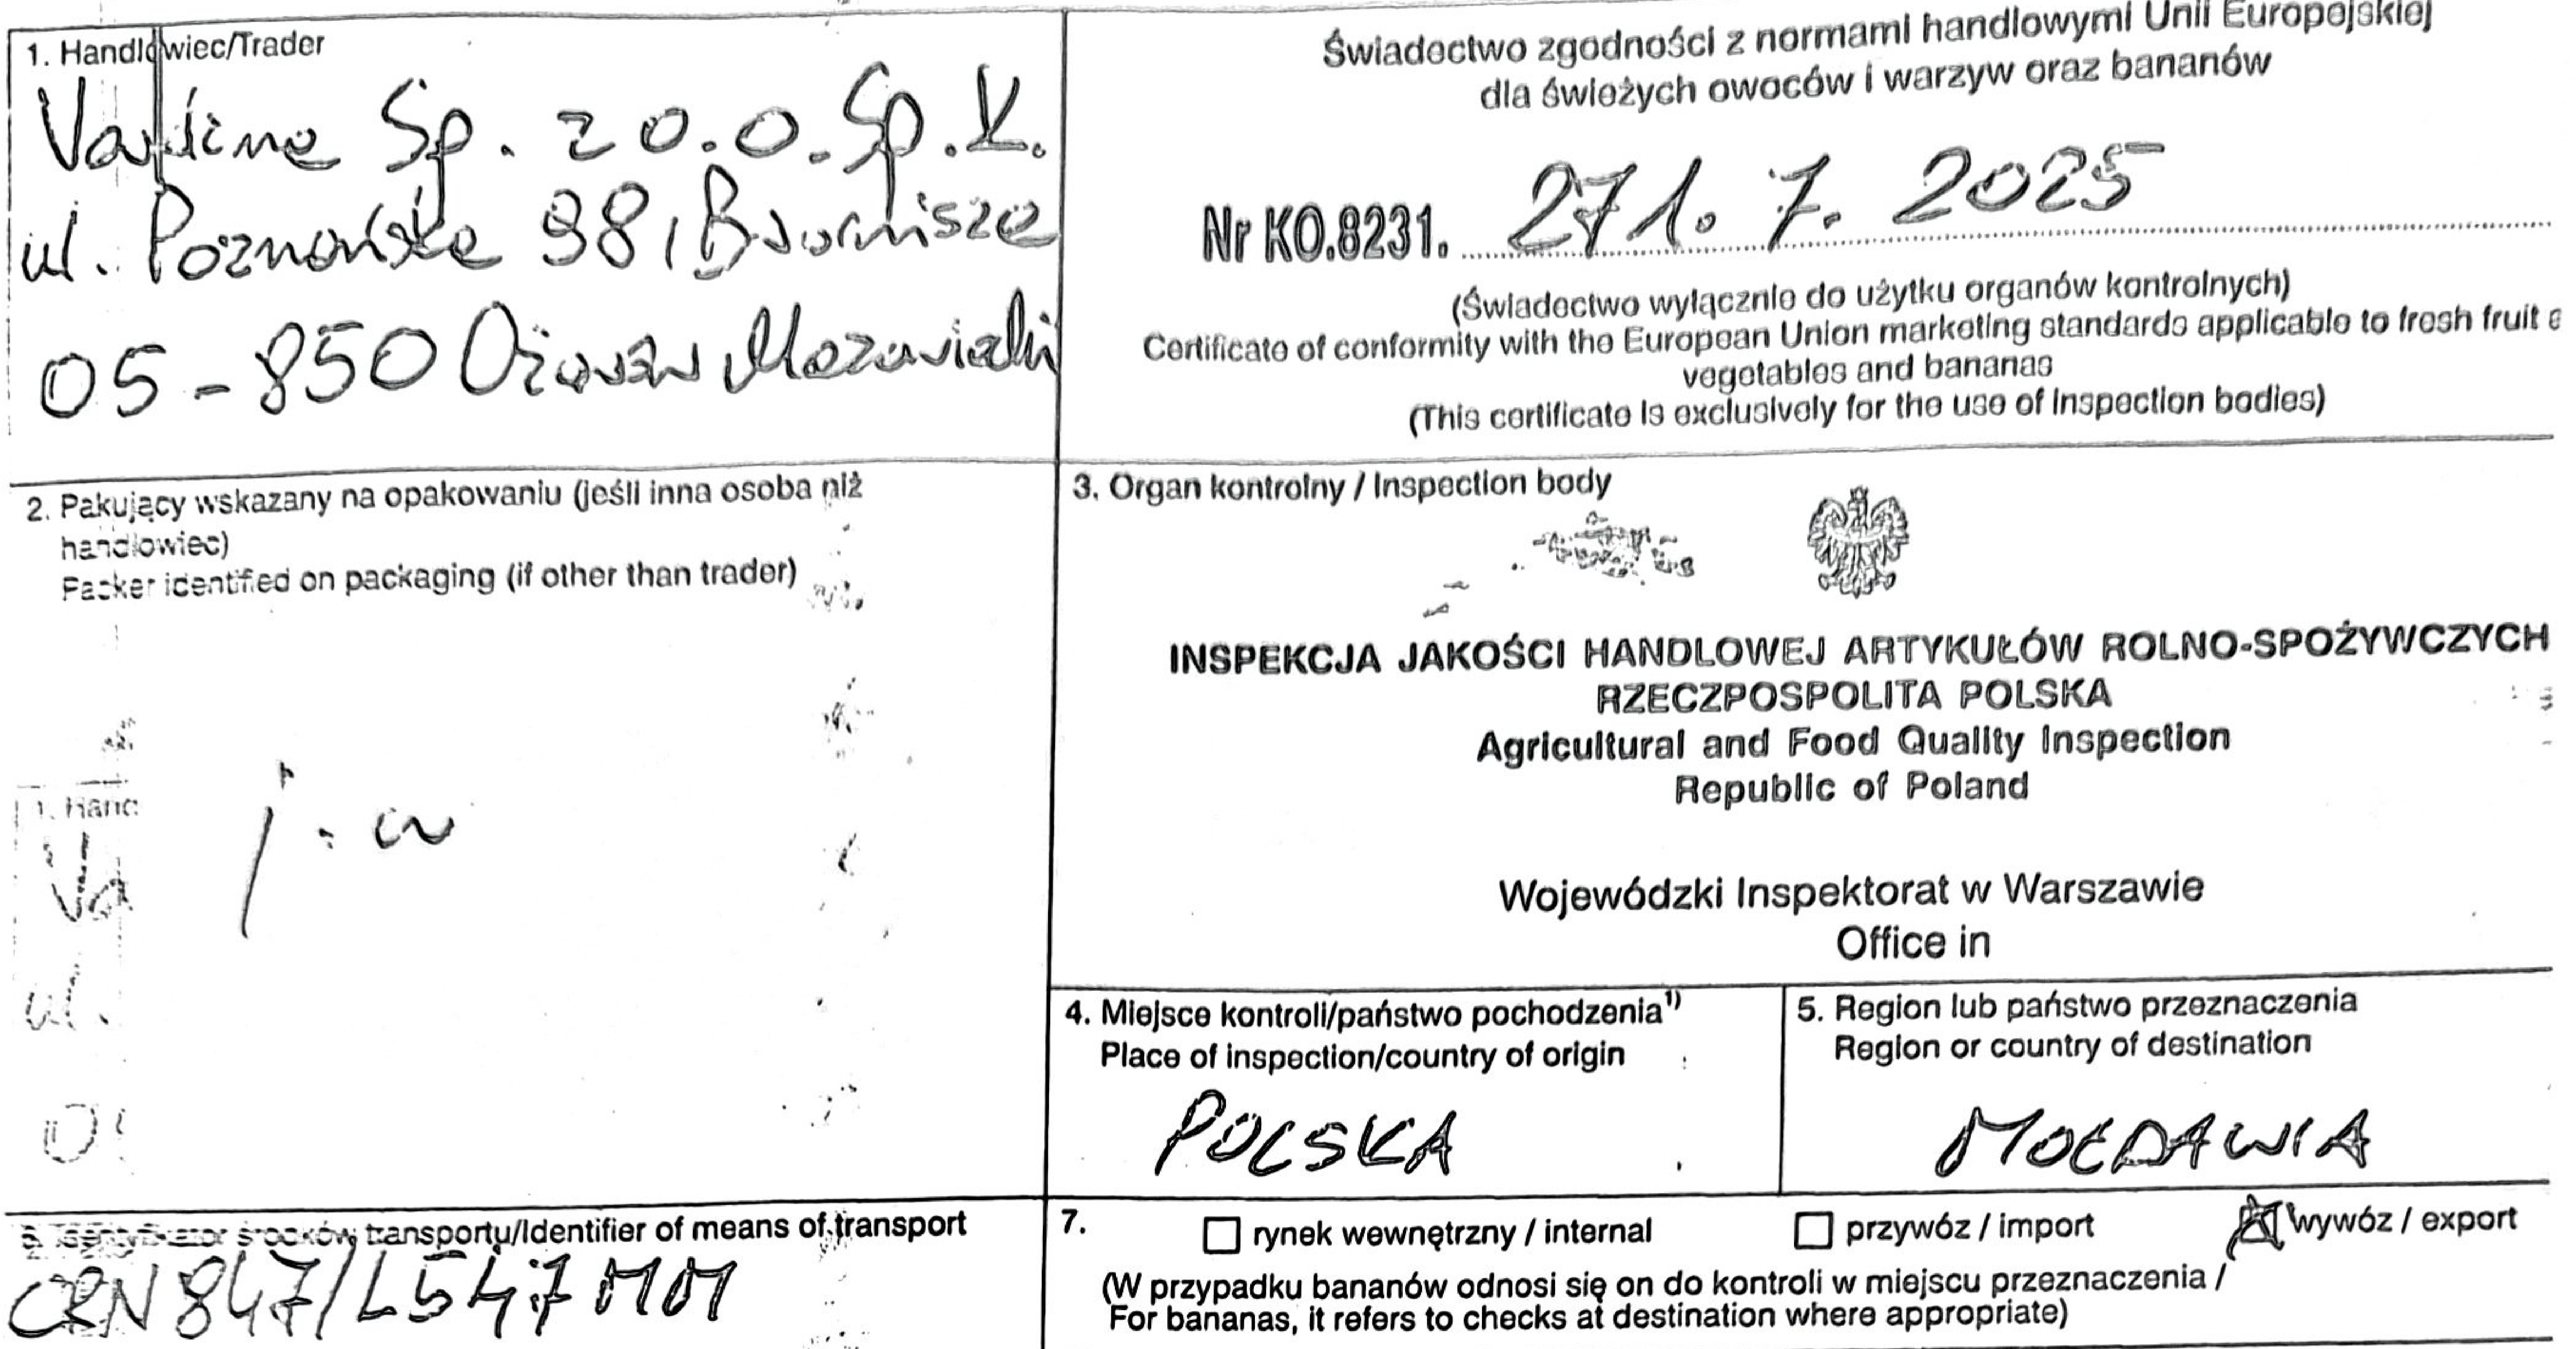 1. Handlowiec/Trader
Sp. z o.o. Sp. K.
ul. Poznańska 98, Bronisze
05-850 Ożarów Mazowiecki
Świadectwo zgodności z normami handlowymi Unii Europejskiej
dla świeżych owoców i warzyw oraz bananów
Nr KO.8231. 271. 7. 2025
(Świadectwo wyłącznie do użytku organów kontrolnych)
Certificate of conformity with the European Union marketing standards applicable to fresh fruit
vegetables and bananas
(This certificate is exclusively for the use of inspection bodies)
2. Pakujący wskazany na opakowaniu (jeśli inna osoba niż
handlowiec)
Packer identified on packaging (if other than trader)
j. w
1. Hand
ul.
3. Organ kontrolny / Inspection body
INSPEKCJA JAKOŚCI HANDLOWEJ ARTYKUŁÓW ROLNO-SPOŻYWCZYCH
RZECZPOSPOLITA POLSKA
Agricultural and Food Quality Inspection
Republic of Poland
Wojewódzki Inspektorat w Warszawie
Office in
4. Miejsce kontroli/państwo pochodzenia¹⁾
Place of inspection/country of origin
POLSKA
5. Region lub państwo przeznaczenia
Region or country of destination
MOŁDAWIA
6. Identyfikator środków transportu/Identifier of means of transport
CRN847/L547MM
7. rynek wewnętrzny / internal przywóz / import wywóz / export
(W przypadku bananów odnosi się on do kontroli w miejscu przeznaczenia /
For bananas, it refers to checks at destination where appropriate)